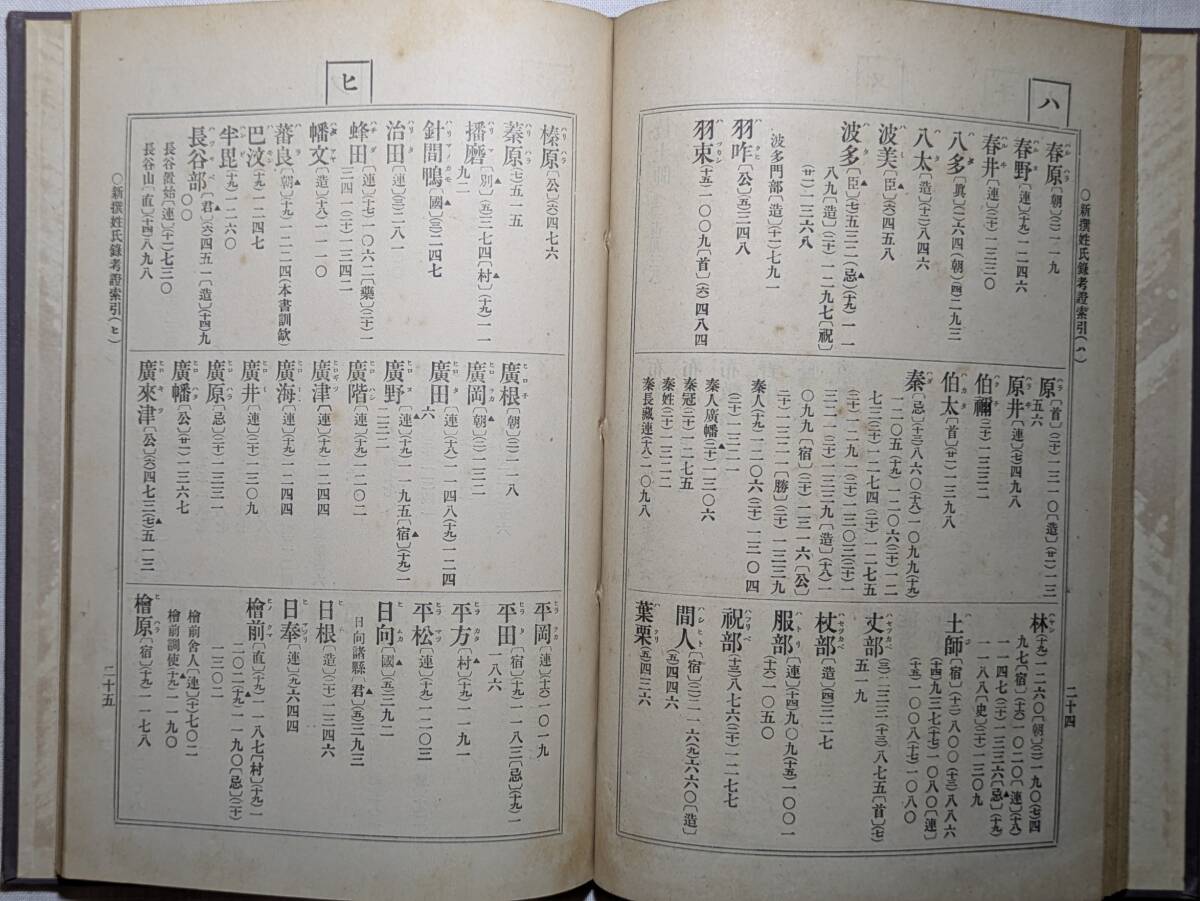 ハ
○新撰姓氏錄考證索引(ハ)
春原〔朝〕(三)一一九
春野〔連〕(十九)一二四六
春井〔連〕(三十)一三三〇
八多〔眞〕(二)六四〔朝〕(四)二九三
八太〔造〕(十三)八四六
波美〔臣〕(六)四五八
波多〔臣〕(七)五三二〔忌〕(十九)一一
八九〔造〕(三十)一二九七〔祝〕
(廿一)一三六八
波多門部〔造〕(十一)七九一
羽咋〔公〕(五)三四八
羽束(十五)一〇〇九〔首〕(六)四八四
原〔首〕(三十)一三一〇〔造〕(廿一)一三
五六
原井〔連〕(七)四九八
伯禰(三十)一三三二
伯太〔首〕(廿一)一三九八
秦〔忌〕(十三)八六〇(十八)一〇九九(十九)
一二〇五(十九)一二〇六(三十)一二
七三(三十)一二七四(三十)一二七五
(三十)一二九一(三十)一三〇三(三十)一
三二一(三十)一三三九〔造〕(十八)一
〇九九〔宿〕(三十)一三一六〔公〕
(三十)一三二一〔勝〕(三十)一三三九
秦人(十九)一二〇六(三十)一三〇四
(三十)一三二一
秦人廣幡(三十)一三〇六
秦冠(三十)一二七五
秦姓(三十)一三二二
秦長藏連(十八)一〇九八
林(十九)一二六〇〔朝〕(三)一九〇(七)四
九七〔宿〕(十六)一〇二〇〔連〕(十八)
一一四七(三十)一三三六〔忌〕(十九)
一一八八〔史〕(三十)一三〇九
土師〔宿〕(十三)八〇〇(十三)八八六
(十四)九三七(十七)一〇八〇〔連〕
(十五)一〇〇八(十七)一〇八〇
丈部(三)二三三(十三)八七五〔首〕(七)
五一九
杖部〔造〕(四)三二七
服部〔連〕(十四)九〇九(十五)一〇〇一
(十六)一〇五〇
祝部(十三)八七六(三十)一二七七
間人〔宿〕(三)二一六(九)六六〇〔造〕
(五)四四六
葉栗(五)四三六
二十四
ヒ
榛原〔公〕(六)四七六
蓁原(七)五一五
播磨〔別〕(五)三七四〔村〕(十九)一一
九二
針間鴨〔國〕(三)二四七
治田〔連〕(三)二八一
蜂田〔連〕(十七)一〇六二〔藥〕(三十)一
三四一(三十)一三四二
幡文〔造〕(十八)一一一〇
蕃良〔朝〕(十九)一二二四(本書訓歟)
巴汶(十九)一二四七
半毘(十九)一二六〇
長谷部〔君〕(六)四五一〔造〕(十四)九
〇〇
長谷置始〔連〕(十一)七三〇
長谷山〔直〕(十四)八九八
○新撰姓氏錄考證索引(ヒ)
廣根〔朝〕(三)一一八
廣岡〔朝〕(三)一三二
廣田〔連〕(十八)一一四八(十九)一二四
六
廣野〔連〕(十九)一一九五〔宿〕(十九)一
二三二
廣階〔連〕(十九)一二〇二
廣津〔連〕(十九)一二四四
廣海〔連〕(十九)一二四四
廣井〔連〕(三十)一三〇九
廣原〔忌〕(三十)一三三一
廣幡〔公〕(廿一)一三六七
廣來津〔公〕(六)四七三(七)五一三
平岡〔連〕(十六)一〇一九
平田〔宿〕(十九)一一八三〔忌〕(十九)一
一八六
平方〔村〕(十九)一一九一
平松〔連〕(十九)一二〇三
日向〔國〕(五)三九二
日向諸縣〔君〕(五)三九三
日根〔造〕(三十)一三四六
日奉〔連〕(九)六四四
檜前〔直〕(十九)一一八七〔村〕(十九)一
二〇二(十九)一一九〇〔忌〕(三十)
一三〇二
檜前舍人〔連〕(十)七〇二
檜前調使(十九)一一九〇
檜原〔宿〕(十九)一一七八
二十五